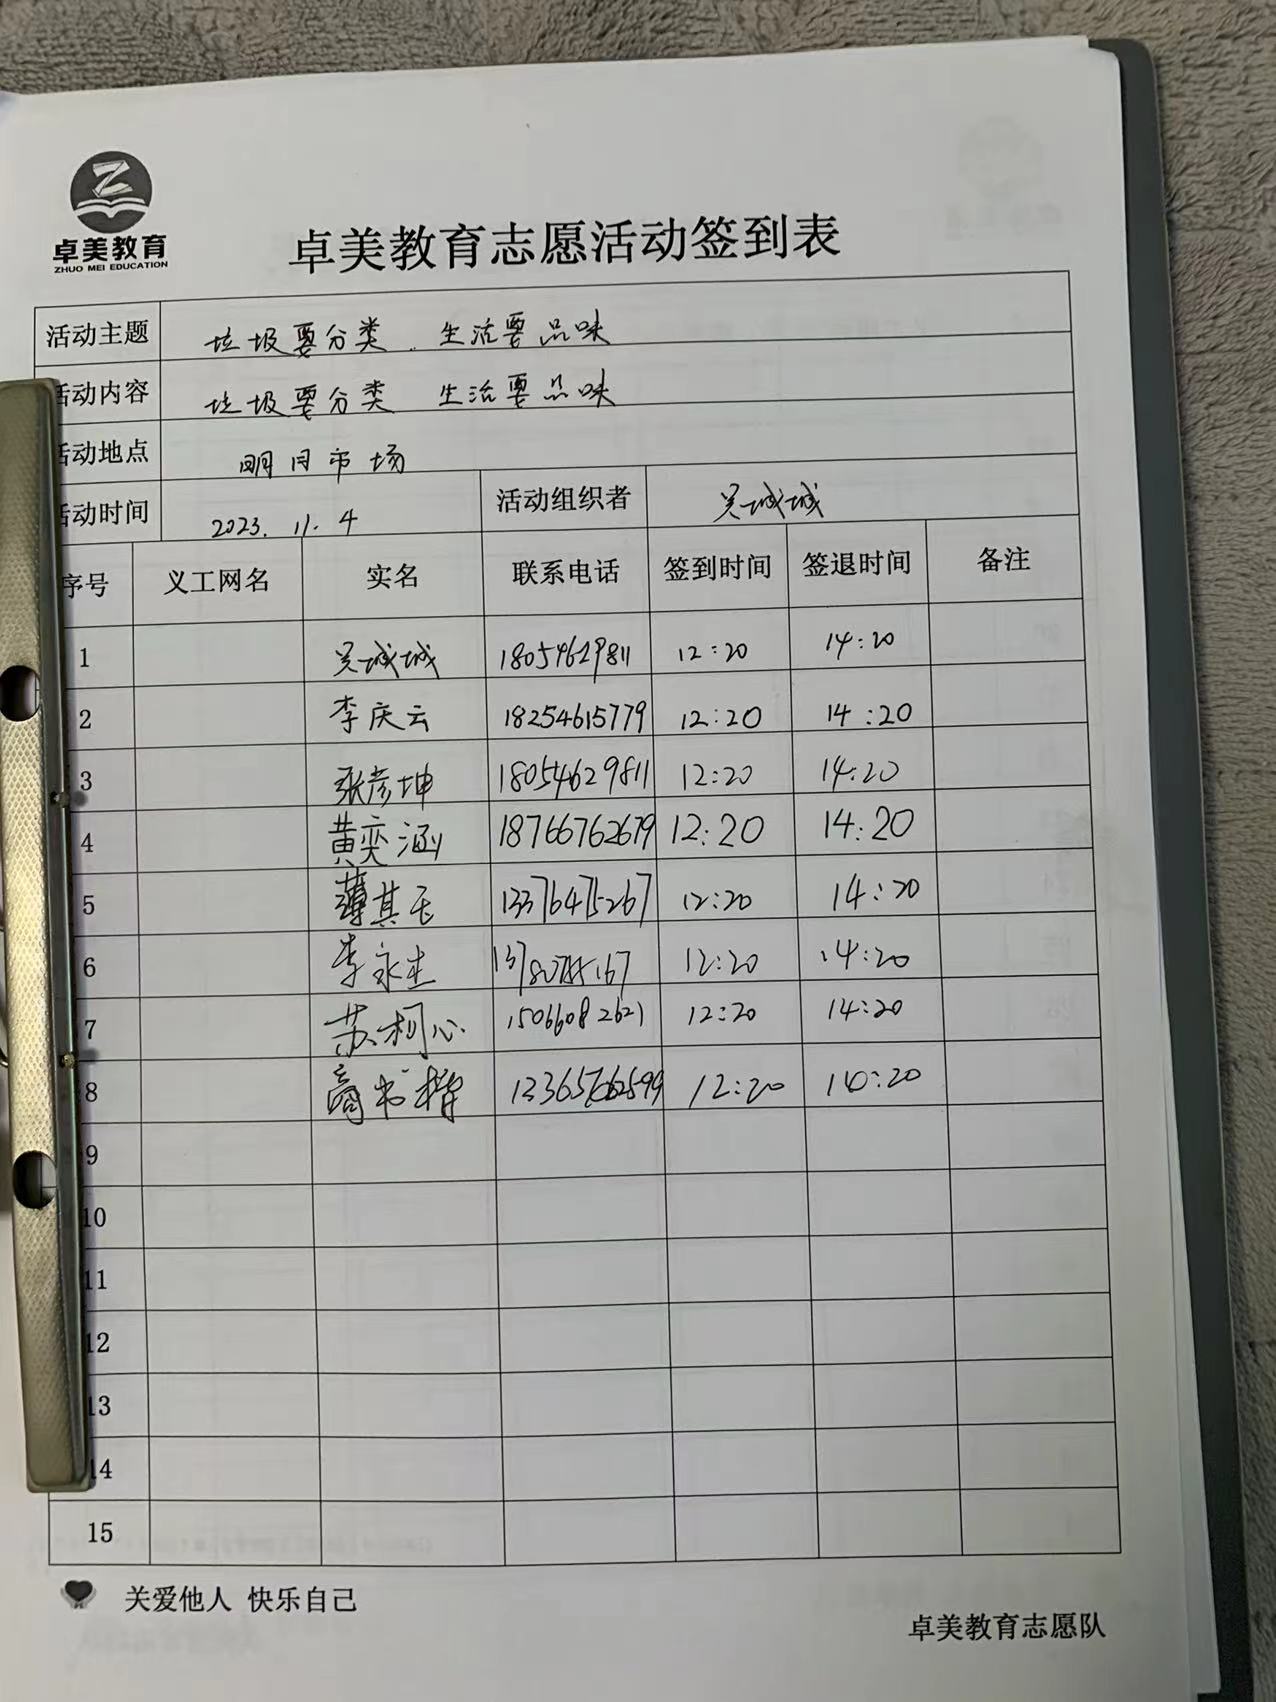 卓美教育
ZHUO MEI EDUCATION
卓美教育志愿活动签到表
活动主题 垃圾要分类 生活要品味
活动内容 垃圾要分类 生活要品味
活动地点 明月市场
活动时间 2023.11.4 活动组织者 吴城城
序号 义工网名 实名 联系电话 签到时间 签退时间 备注
1 吴城城 18054629811 12:20 14:20
2 李庆云 18254615779 12:20 14:20
3 张彦坤 18054629811 12:20 14:20
4 黄奕涵 18766762679 12:20 14:20
5 薄其 13376475267 12:20 14:20
6 李永生 12:20 14:20
7 苏利心 15066082621 12:20 14:20
8 12:20 14:20
9
10
11
12
13
14
15
关爱他人 快乐自己
卓美教育志愿队